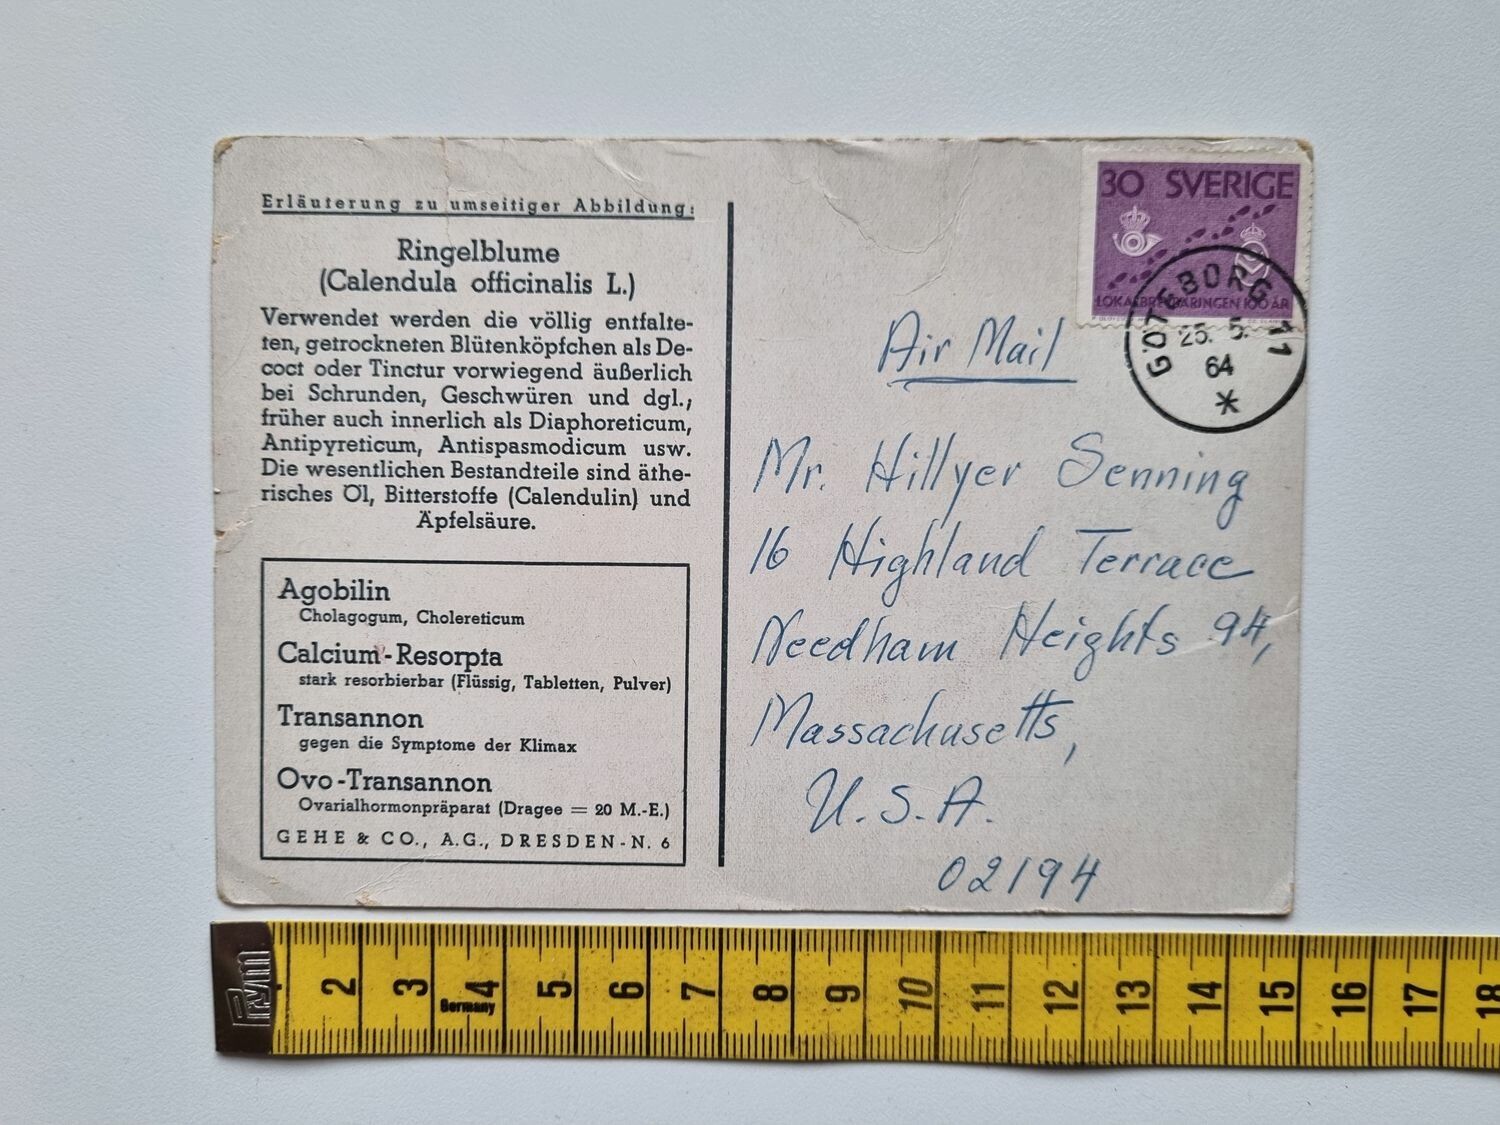 Erläuterung zu umseitiger Abbildung:
Ringelblume
(Calendula officinalis L.)
Verwendet werden die völlig entfalte-
ten, getrockneten Blütenköpfchen als De-
coct oder Tinctur vorwiegend äußerlich
bei Schrunden, Geschwüren und dgl.;
früher auch innerlich als Diaphoreticum,
Antipyreticum, Antispasmodicum usw.
Die wesentlichen Bestandteile sind äthe-
risches Öl, Bitterstoffe (Calendulin) und
Äpfelsäure.
Agobilin
Cholagogum, Cholereticum
Calcium-Resorpta
stark resorbierbar (Flüssig, Tabletten, Pulver)
Transannon
gegen die Symptome der Klimax
Ovo-Transannon
Ovarialhormonpräparat (Dragee = 20 M.-E.)
GEHE & CO., A.G., DRESDEN-N. 6
30 SVERIGE
LOKALBREVBÄRINGEN 100 ÅR
GÖTEBORG 11
25. 5.
64
Air Mail
Mr. Hillyer Senning
16 Highland Terrace
Needham Heights 94,
Massachusetts,
U.S.A.
02194
Prym
2 3 4 5 6 7 8 9 10 11 12 13 14 15 16 17 18
Germany